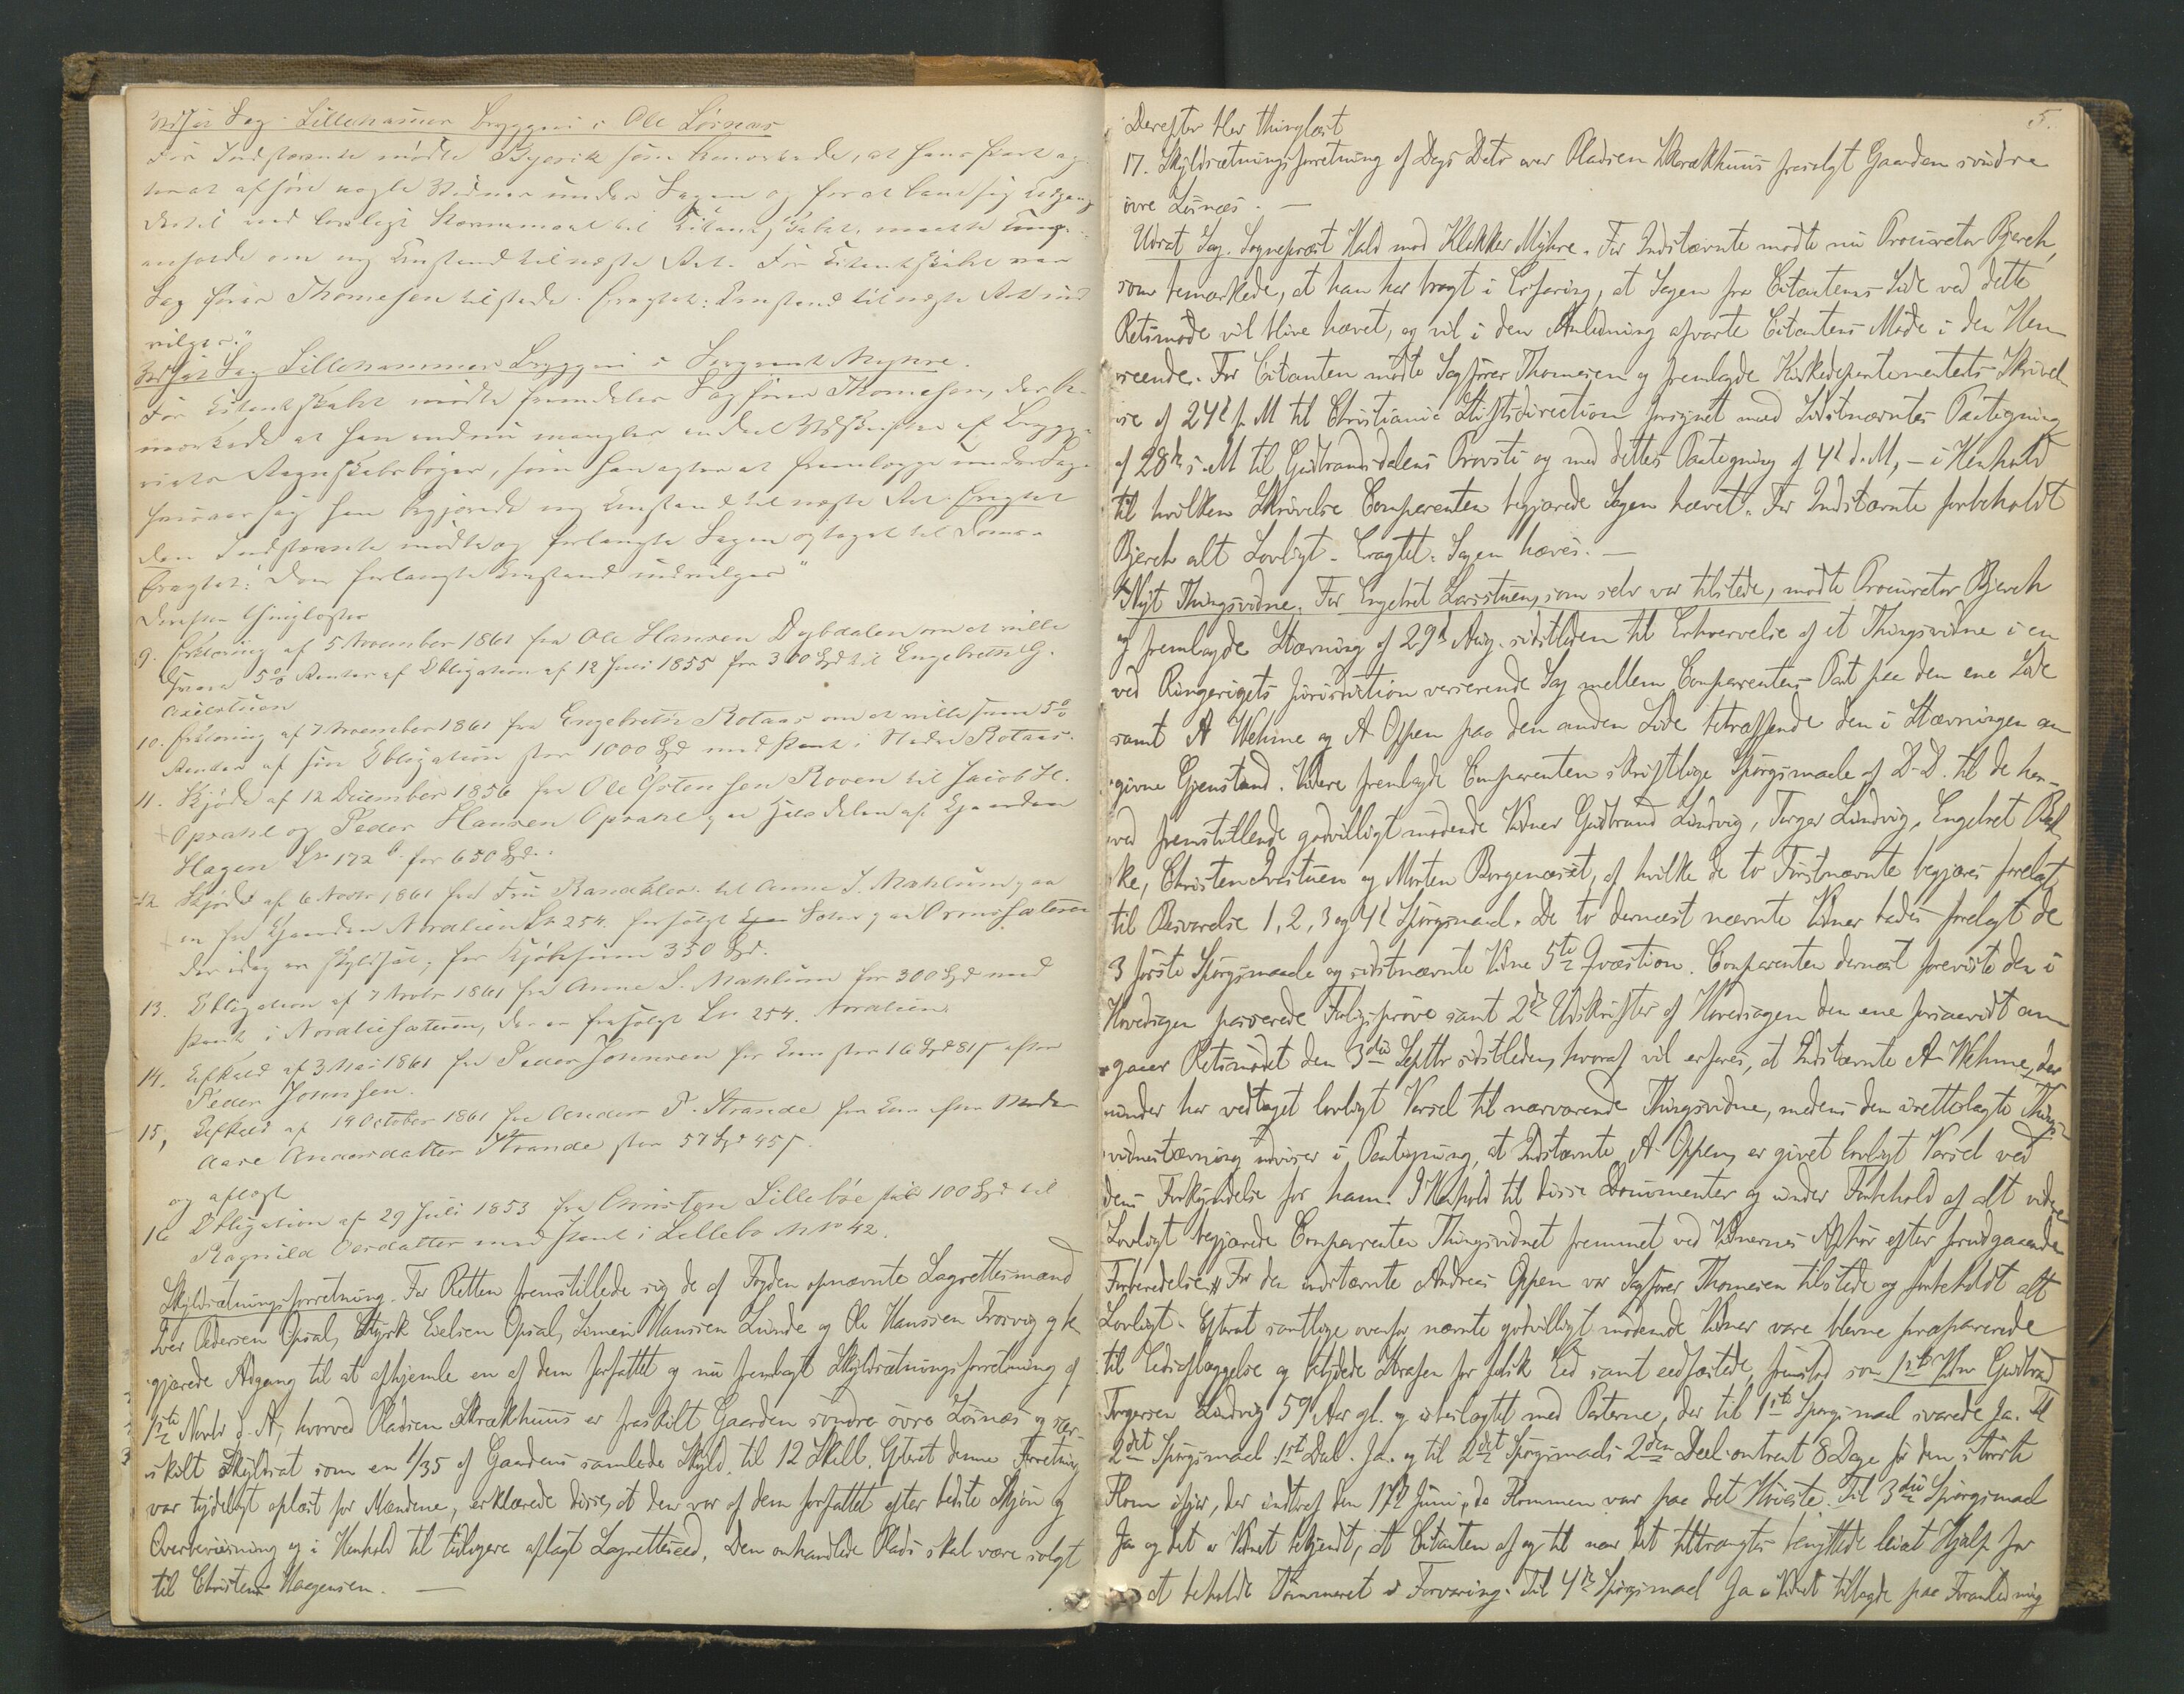 Udsat Sag. Lillehamer Bryggeri c Ole Lösnæs
For Indstævnte mödte Bjerck som bemærkede, at hans Part ag-
ter at afhöre nogle Vidner under Sagen og for at bane sig Adgang
dertil ved lovligt Kontramaal til Citantskabet, maatte Comp.
anholde om ny Anstand til næste Ret. For Citantskabet var
Sagförer Thomesen tilstede. Eragtet: Anstand til næste Ret ind
vilges."
Udsat Sag Lillehammer Bryggeri c Sergeant Myhre.
For Citantskabet mödte fremdeles Sagförer Thomesen, der be-
mærkede at han endnu mangler endeel Udskrifter af Brygge-
riets Regnskabsböger, som han agter at fremlægge under Sagen
hvisaarsag han begjærede ny Anstand til næste Ret.
den Indstævnte mödte og forlangte Sagen optaget til Doms.
Eragtet: Den forlangte Anstand indvilges"
Derefter thinglæstes
9. Erklæring af 5 November 1861 fra Ole Hansen Dybdalen om at ville
svare 5% Renter af Obligation af 12 Juli 1855 for 300 Spd til Engebreth G.
10. Erklæring af 7 November 1861 fra Engebreth Rotaas om at ville svare 5%
Renter af sin Obligation stor 1000 Spd med Pant i Nedre Rotaas.
11. Skjöde af 12 December 1856 fra Ole Ostensen Roven til Jacob H.
Opsahl og Peder Hansen Opsahl paa Halvdelen af Gaarden
Hagen Lr 172 b. for 650 Spd.
12 Skjöde af 6 Novbr 1861 fra Fru Randklev til Anne S. Mæhlum paa
en fra Gaarden Nordlien Lr 254. frasolgt Sæter
der idag er skyldsat, for Kjöbesum 350 Spd.
13. Obligation af 7 Novbr 1861 fra Anne S. Mæhlum for 300 Spd med
Pant i Nordliesæteren, der er frasolgt Lr 254. Nordlien.
14. Afkald af 3 Mai 1861 fra Peder Johnsen for Arv stor 16 Spd 81 s efter
Peder Johnsen.
15, Afkald af 19 October 1861 fra Anders P. Strande for Arv efter Moder
Aase Andersdatter Strande stor 57 Spd 45 s.
og aflæst
16 Obligation af 29 Juli 1853 fra Christen Lilleböe for 100 Spd til
Ragnild Olesdatter med Pant i Lillebo M No 42.
Skyldsætningsforretning. For Retten fremstillede sig de af Fogden opnævnte Lagrettesmænd
Iver Pedersen Opsal, Styrk Eielsen Opsal, Simen Hansen Lunde og Ole Hanssen Frosvig og be
gjærede Adgang til at afhjemle en af dem forfattet og nu fremlagt Skyldsætningsforretning af
1ste Novbr d. A, hvorved Pladsen Skrækhuus er fraskilt Gaarden söndre övre Lösnæs og sær-
skilt Skyldsat som en 1/35 af Gaardens samlede Skyld, til 12 Skill. Efterat denne Forretning
var tydeligt oplæst for Mændene, erklærede disse, at den var af dem forfattet efter bedste Skjön og
Overbeviisning og i Henhold til tidligere aflagt Lagretteseed. Den omhandlede Plads skal være solgt
til Christen Haagensen. —
5.
Derefter blev thinglæst
17. Skyldsætningsforretning af Dags Dato over Pladsen Skrækhuus frasolgt Gaarden söndre
övre Lösnæs. —
Udsat Sag. Sognepræst Hald mod Klokker Myhre. For Indstævnte mödte nu Procurator Bjerch,
som bemærkede, at han har bragt i Erfaring, at Sagen fra Citantens Side ved dette
Retsmöde vil blive hævet, og vil i den Anledning afvarte Citantens Möde i den Hen-
seende. For Citanten mödte Sagförer Thomesen og fremlagde Kirkedepartementets Skrivel-
se af 24de f. M til Christiania Stiftsdirection forsynet med Sidstnævntes Paategning
af 28de s. M til Gudbrandsdalens Provsti og med dettes Paategning af 4de d. M, — i Henhold
til hvilken Skrivelse Comparenten begjærede Sagen hævet. For Indstævnte forbeholdt
Bjerch alt Lovligt. Eragtet: Sagen hæves. —
Nyt Thingsvidne. For Engebret Loristuen, som selv var tilstede, mödte Procurator Bjerch
og fremlagde Stævning af 29de Aug. sidstleden til Erhvervelse af et Thingsvidne i en
ved Ringerigets Jurisdiction verserende Sag mellem Comparentens Part paa den ene Side
samt A Wehme og A. Oppen paa den anden Side betræffende den i Stævningen an
givne Gjenstand. Videre fremlagde Comparenten skriftlige Spörgsmaale af D. D. til de her-
ved fremstillende godvilligt mödende Vidner Gudbrand Lundvig, Torger Lundvig, Engebret Bak
ke, Christen Loristuen og Morten Borgenæset, af hvilke de to Förstnævnte begjæres forelagt
til Besvarelse 1, 2, 3 og 4de Spörgsmaal. De to dernæst nævnte Vidner bedes forelagt de
3 förste Spörgsmaale og sidstnævnte Vidne 5te Qvæstion. Comparenten dernæst foreviste den i
Hovedsagen passerede Forligspröve samt 2de Udskrifter af Hovedsagen den ene forsaavidt an
gaaer Retsmödet den 3die Septbr sidstleden, hvoraf vil erfares, at Indstævnte A Wehme, der
under har vedtaget lovligt Varsel til nærværende Thingsvidne, medens den irettelagte Things-
vidnestævning udviser i Paategning, at Indstævnte A. Oppen er givet lovligt Varsel ved
dens Forkyndelse for ham. I Henhold til disse Documenter og under Forbehold af alt videre
Lovligt begjærede Comparenten Thingsvidnet fremmet ved Vidnernes Afhör efter forudgaaende
Forberedelse. For den indstævnte Andreas Oppen var Sagförer Thomesen tilstede og forbeholdt alt
Lovligt. Efterat samtlige ovenfor nævnte godvilligt mödende Vidner vare blevne præparerede
til Eedsaflæggelse og betydede Straffen for falsk Eed samt eedfæstede, fremstod som 1ste Vidne Gudbrand
Torgersen Lundvig 59 Aar gl. og ubeslægtet med Parterne, der til 1ste Spörgsmaal svarede Ja. Til
2det Spörgsmaal 1ste Deel. Ja. og til 2det Spörgsmaals 2den Deel omtrent 8 Dage för den störste
Flom ifjor, der indtraf den 17de Juni, da Flommen var paa det Höieste. Til 3die Spörgsmaal
Ja og det er Vidnet bekjendt, at Citanten af og til naar det tiltrængtes benyttede leiet Hjælp for
at beholde Tömmeret i Forvaring. Til 4de Spörgsmaal Ja. Vidnet tillagde paa Foranledning